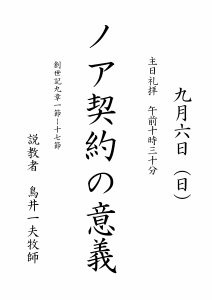 九月六日（日）
主日礼拝　午前十時三十分
ノア契約の意義
創世記九章一節－十七節
説教者　鳥井一夫牧師